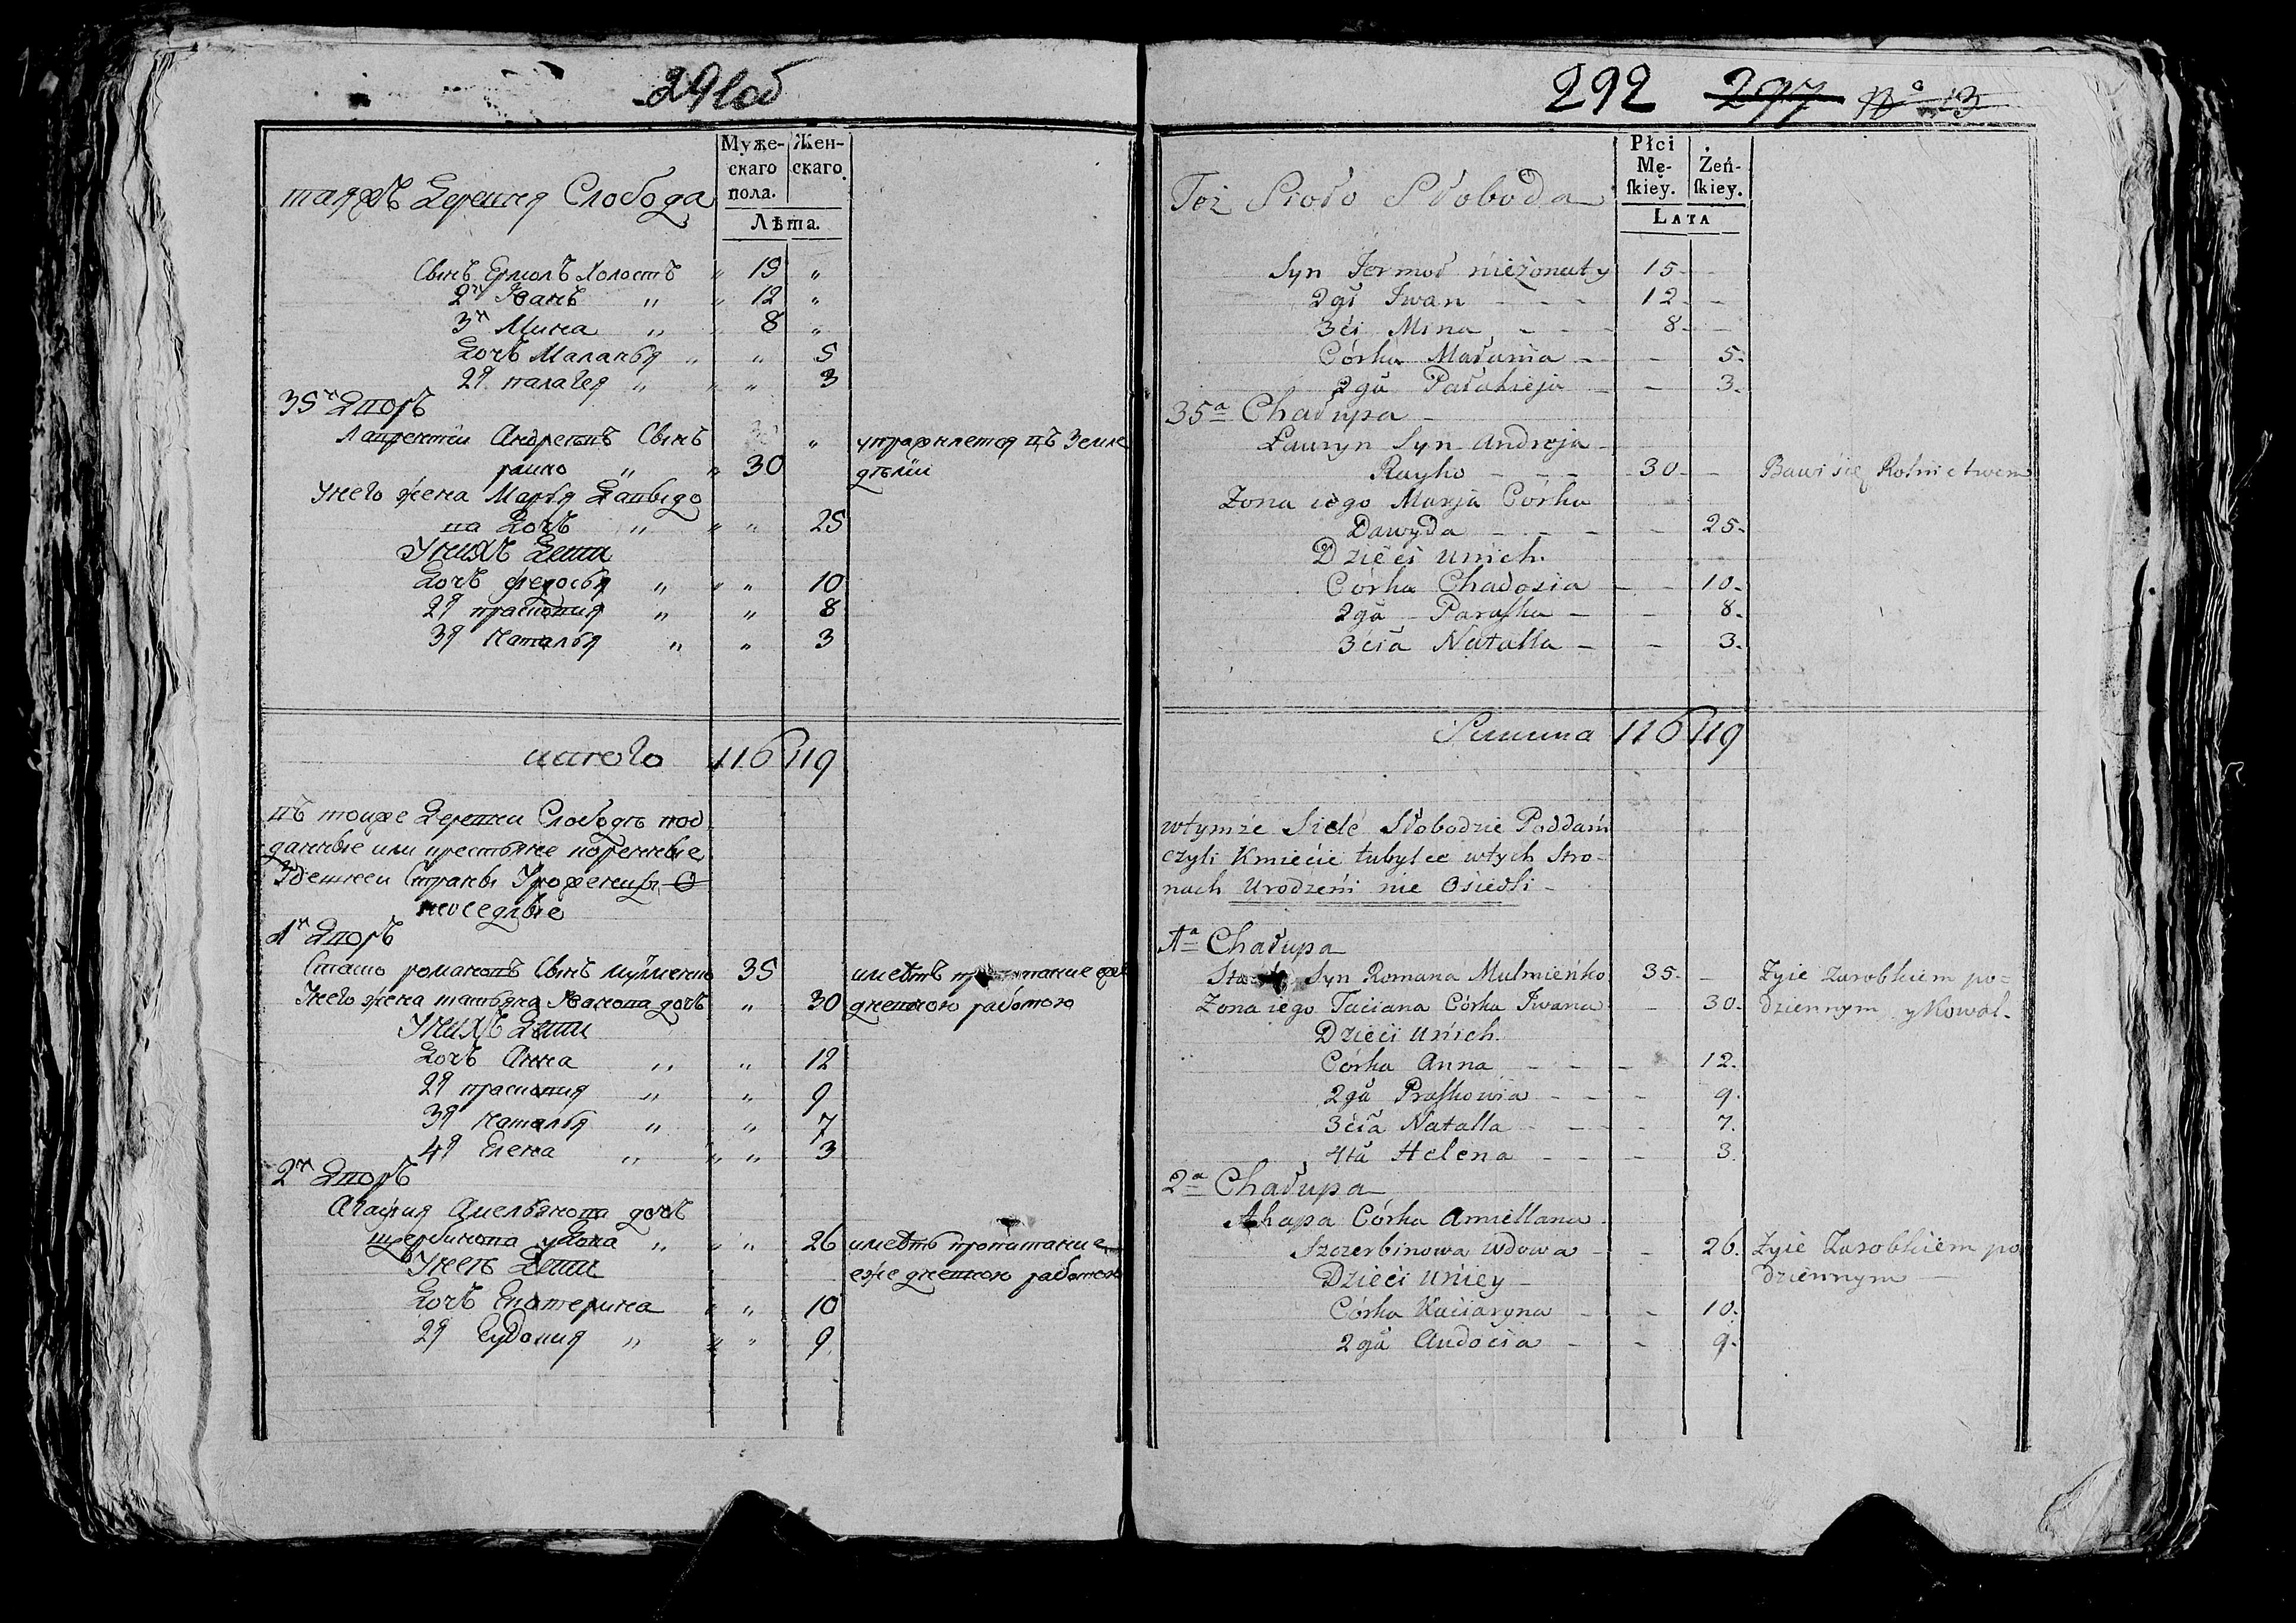 291об
Муже-
скаго
пола.
Жен-
скаго
Лѣта.
таяжъ Деревня Слобода
Сынъ Ермолъ Холостъ " 19 "
2й Иванъ " " 12 "
3й Мина " " 8 "
Дочь Маланья " " 5
2я палагея " " " 3
35й Дворъ
Лаврентій Андреевъ Сынъ " упражняется въ Земле
райко " " 30 дѣліи
Унего жена Марья Давыдо
ва Дочь " " " 25
Унихъ Дети
Дочь федосья " " " 10
2я прасковия " " 8
3я Наталья " " 3
итого 116 119
въ тойже Деревни Слободѣ под
данные или крестьяне коренные
Здешней Страны Урожен
неоседлые
1й Дворъ
Стасько романовъ Сынъ мулменко 35 имеетъ пропитание еже
Унего жена татьяна Иванова дочь " 30 дневною работою
Унихъ Дети
Дочь Анна " " 12
2я прасковия " " 9
3я Наталья " " 7
4я Елена " " " 3
2й Дворъ
Агафия Амельянова дочь
щербинова удова " " " 26 имеетъ пропитание
Унеѣ Дети ежедневною работою
Дочь Екатерина " " 10
2я Еудокия " " " 9
292 297 № 13
Płci
Mę-
ſkiey.
Żeń-
ſkiey.
Lata
Toż Sioło Słoboda
Syn Jermoł nieżonaty 15 -
2gi Iwan - - - 12 -
3ci Mina - - - 8 -
Córka Małania - - 5.
2gă Pałahieja - 3.
35ᵃ Chałupa
Ławryn Syn Andreja
Rayko - - - 30 - Bawi się Rolnictwem
Żona iego Marja Córka
Dawyda - - - - 25.
Dzieci unich.
Córka Chadosia - - 10.
2gă Paraſka - - 8.
3ciă Natalla - - 3.
Summa 116 119
wtymże Siele Słobodzie Poddani
czyli Kmiecie tubylce wtych Stro-
nach Urodzeni nie Osiedli -
1ᵃ Chałupa
Syn Romana Mulmieńko 35 - Żyie Zarobkiem po-
Żona iego Taciana Córka Iwana - 30. dziennym y Kowal.
Dzieci unich.
Córka Anna - - - 12.
2gă Praſkowia - - - 9.
3ciă Natalla - - - 7.
4tă Helena - - - 3.
2ᵃ Chałupa
Ahapa Córka Amiellana
Szczerbinowa Wdowa - - 26. Żyie Zarobkiem po
Dzieci uniey - dziennym -
Córka Kaciaryna - - 10.
2gă Audocia - - 9.